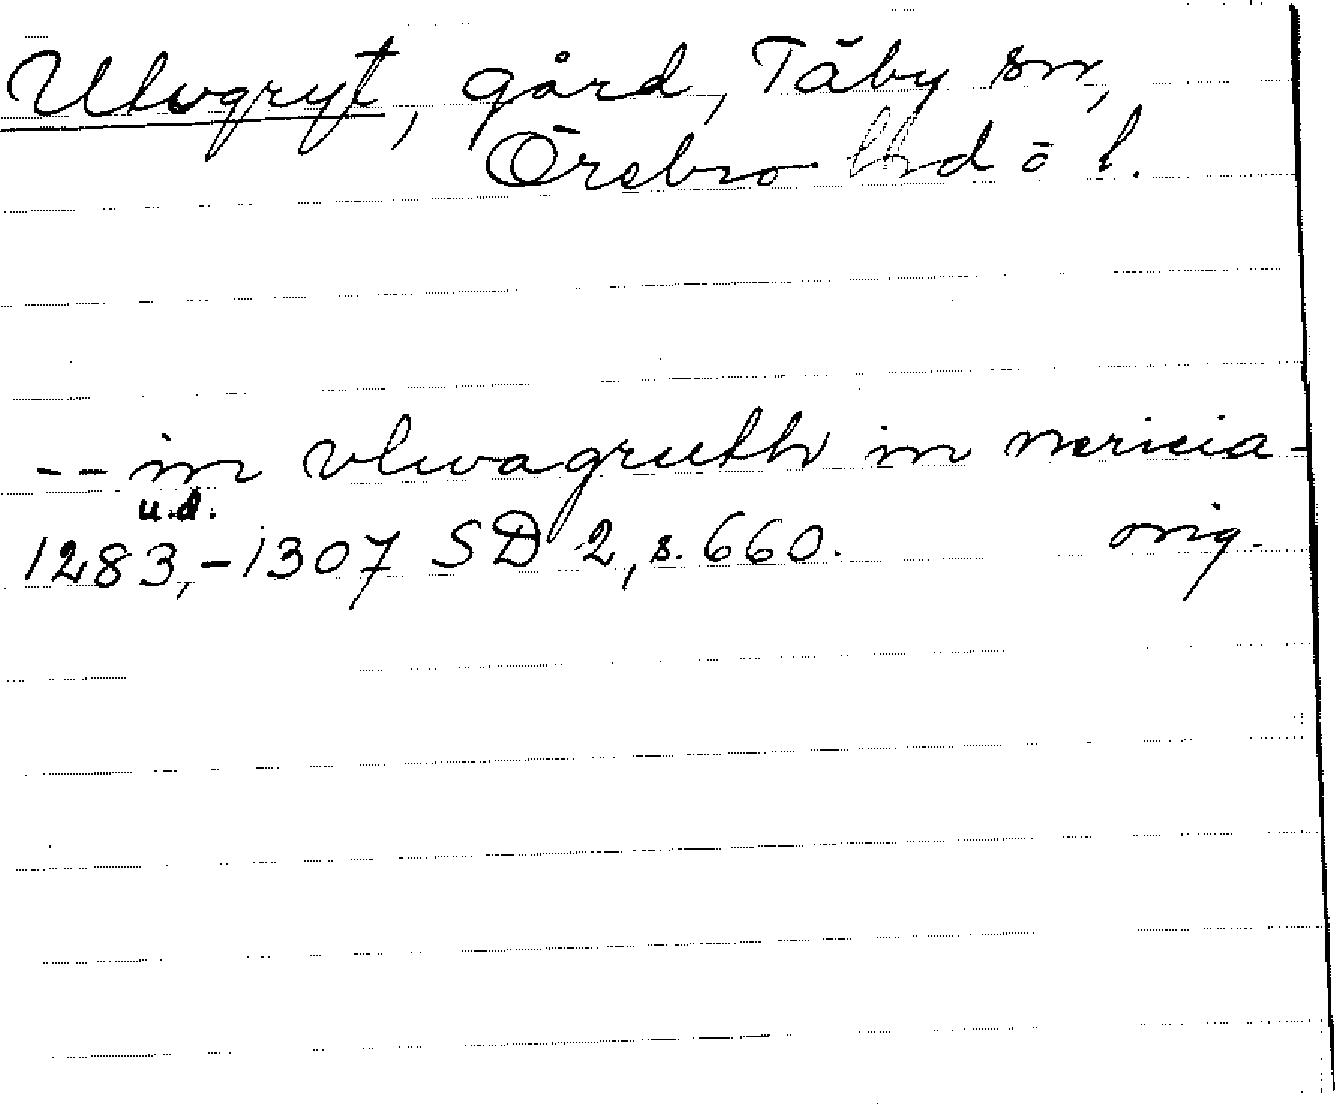 Ulvgryt, gård, Täby sn,
Örebro hd o l.
-- in vlwagruth in nericia -
u.d.
1283,-1307 SD 2, s. 660. orig.